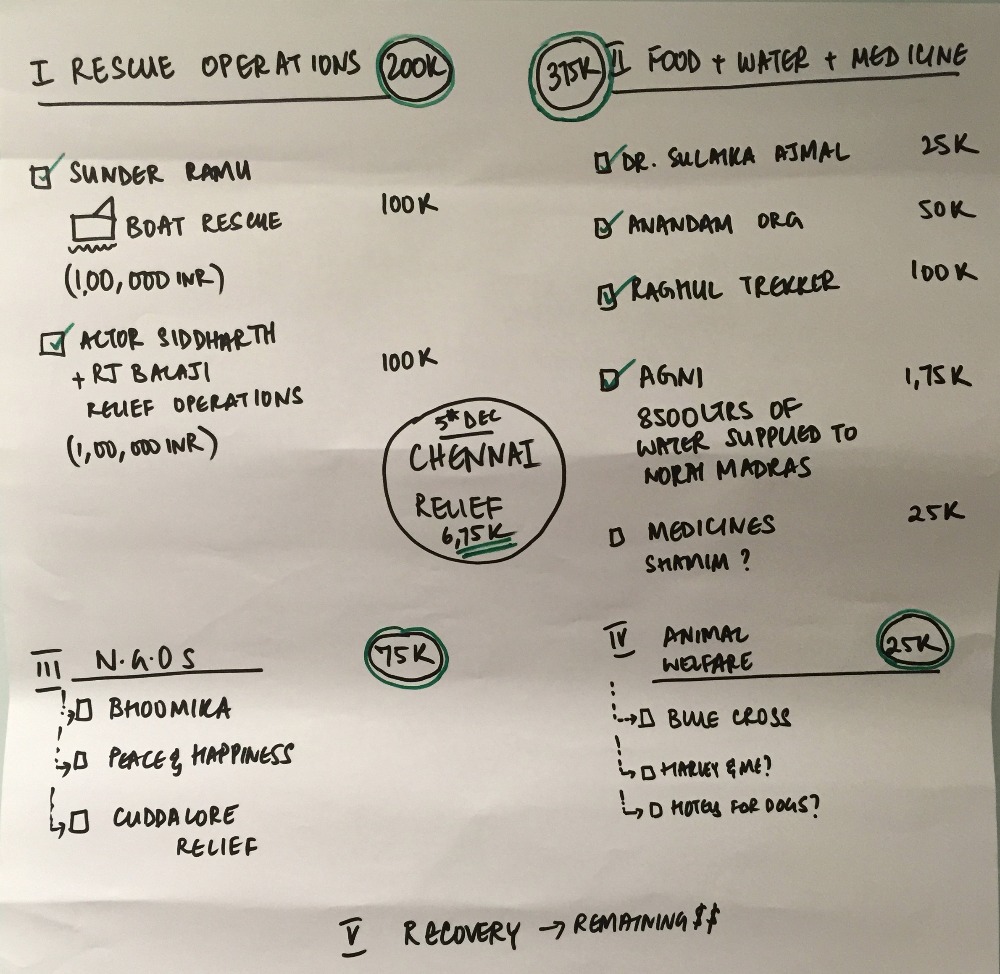 I RESCUE OPERATIONS 200K
SUNDER RAMU
BOAT RESCUE 100K
(1,00,000 INR)
ACTOR SIDDHARTH
+ RJ BALAJI 100K
RELIEF OPERATIONS
(1,00,000 INR)
375K II FOOD + WATER + MEDICINE
DR. SULAIKA AJMAL 25K
ANANDAM ORG 50K
RAGHUL TREKKER 100K
AGNI 1,75K
8500 LTRS OF
WATER SUPPLIED TO
NORTH MADRAS
MEDICINES 25K
SHAMIM ?
5th DEC
CHENNAI
RELIEF
6,75K
III N.G.OS 75K
BHOOMIKA
PEACE & HAPPINESS
CUDDALORE
RELIEF
IV ANIMAL
WELFARE 25K
BLUE CROSS
MARLEY & ME?
HOTELS FOR DOGS?
V RECOVERY → REMAINING $$